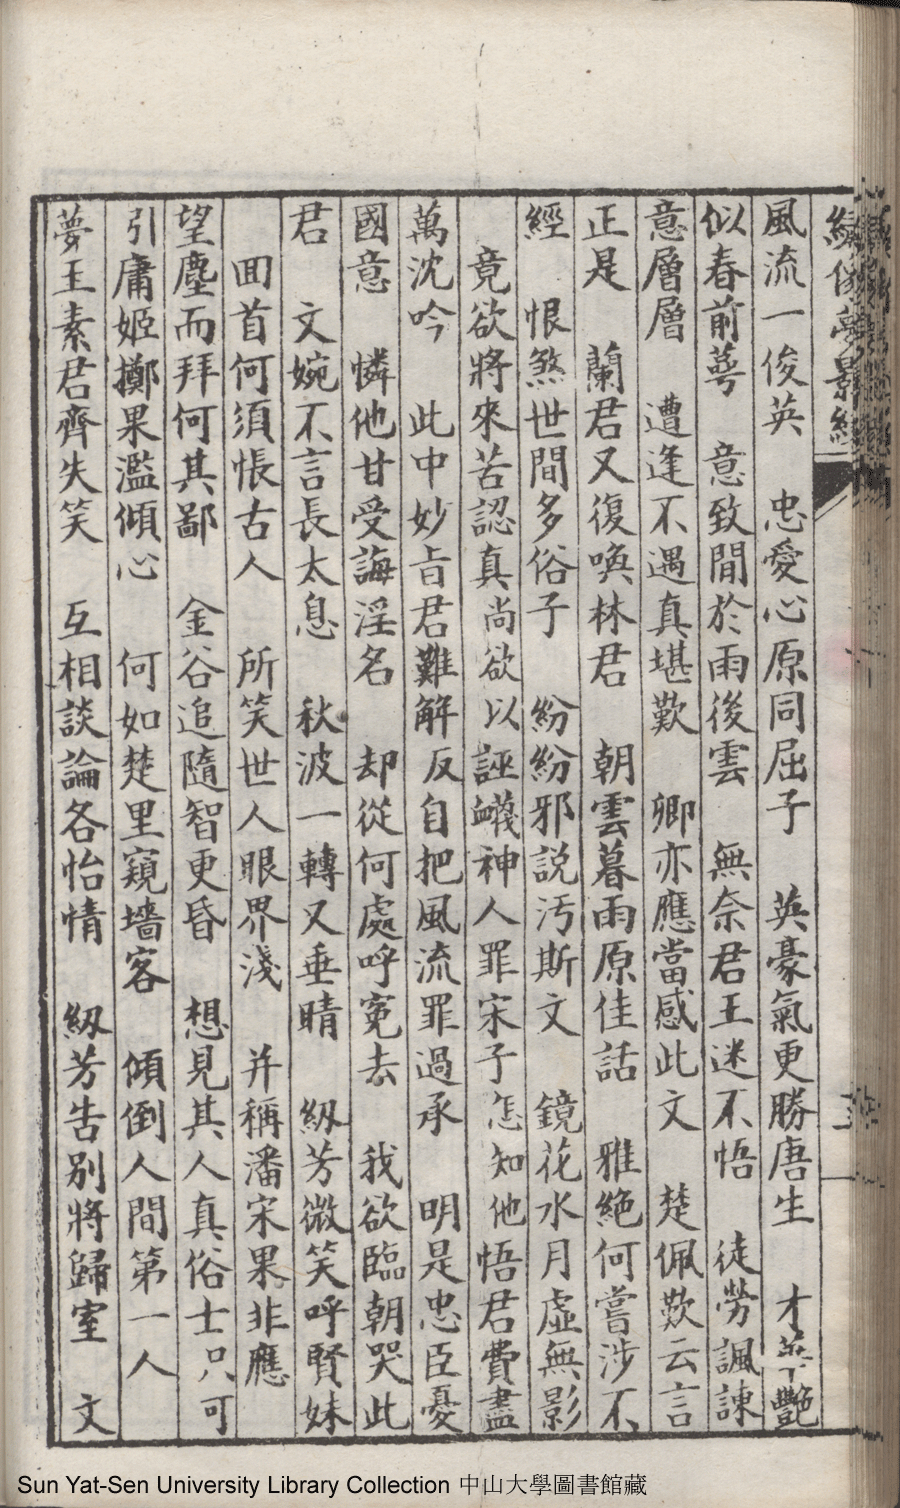 繡像夢影緣
風流一俊英　忠愛心原同屈子　英豪氣更勝唐生　才華艷
似春前萼　意致閒於雨後雲　無奈君王迷不悟　徒勞諷諫
意層層　遭逢不遇真堪歎　卿亦應當感此文　楚佩歎云言
正是　蘭君又復喚林君　朝雲暮雨原佳話　雅絶何嘗涉不
經　恨煞世間多俗子　紛紛邪説汚斯文　鏡花水月虛無影
竟欲將來苦認真尚欲以誣衊神人罪宋子怎知他悟君費盡
萬沈吟　此中妙旨君難解反自把風流罪過承　明是忠臣憂
國意　憐他甘受誨淫名　却從何處呼寃去　我欲臨朝哭此
君　文婉不言長太息　秋波一轉又垂睛　紉芳微笑呼賢妹
囬首何須悵古人　所笑世人眼界淺　并稱潘宋果非應
望塵而拜何其鄙　金谷追隨智更昏　想見其人真俗士只可
引庸姬擲果濫傾心　何如楚里窺墻客　傾倒人間第一人
夢王素君齊失笑　互相談論各怡情　紉芳告别將歸室　文
Sun Yat-Sen University Library Collection 中山大學圖書館藏